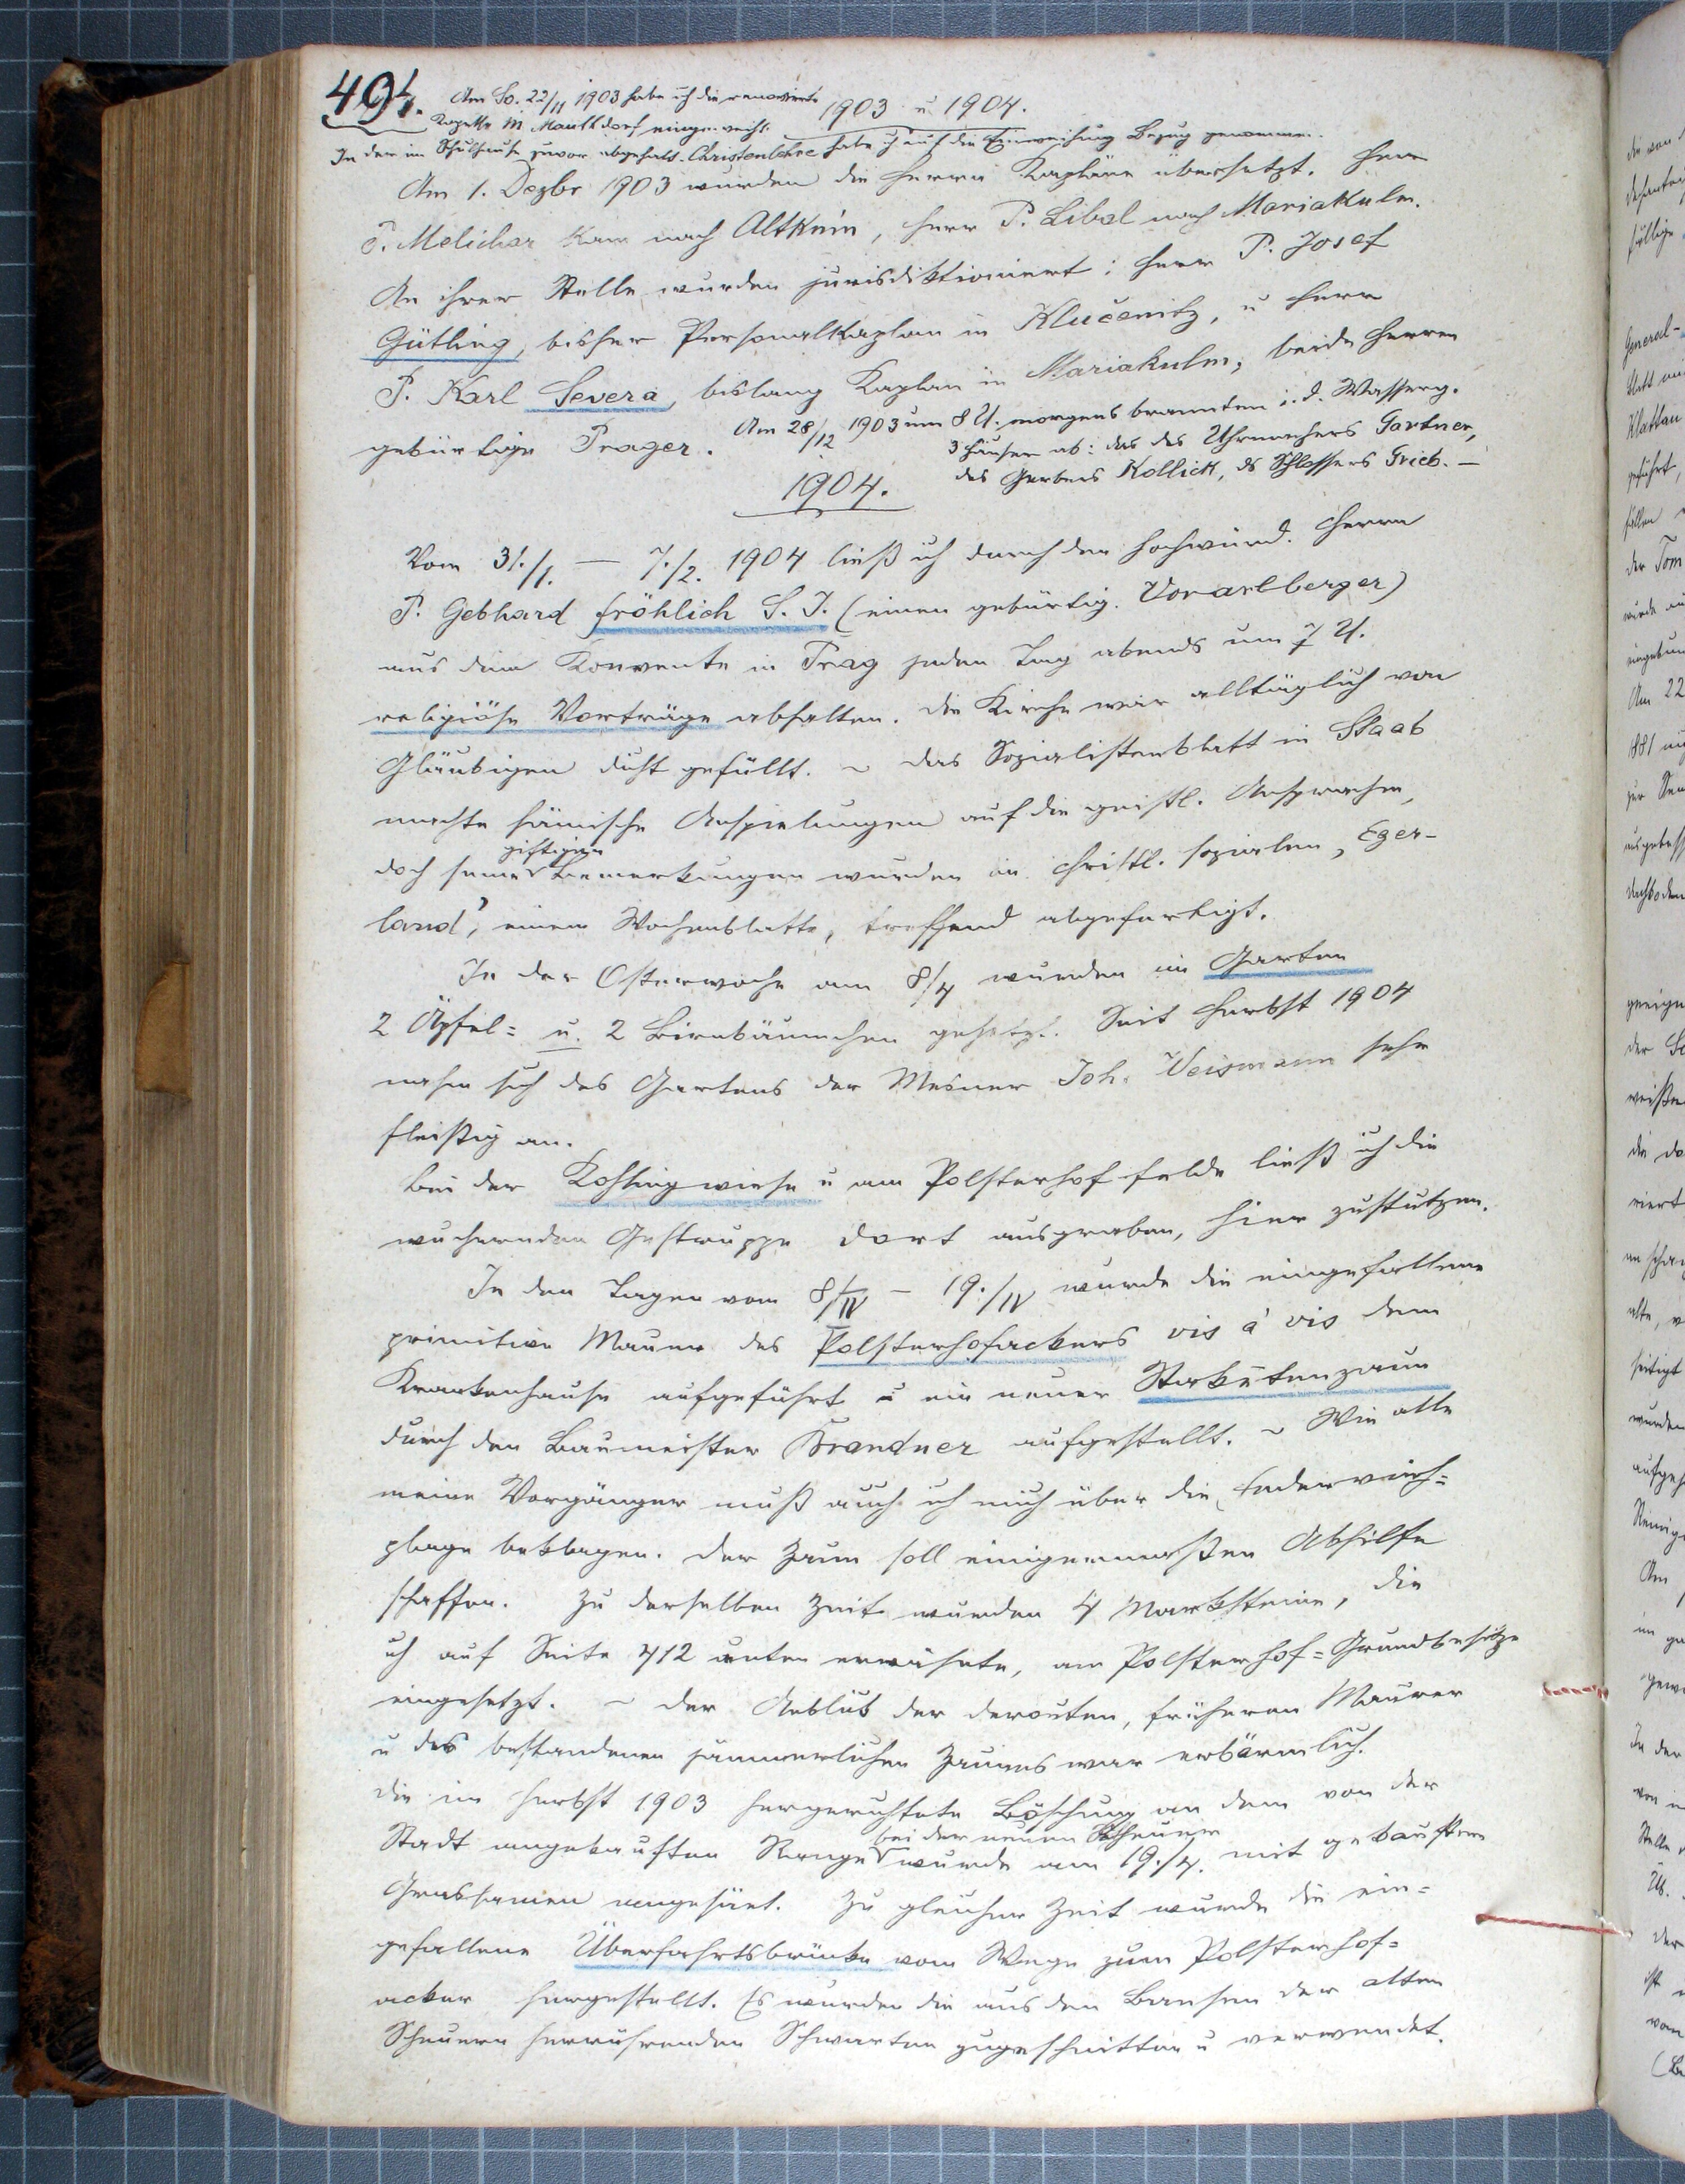 494.
Am So. 22/11 1903 habe ich die renovierte
Kapelle in Mauthdorf eingeweiht.
1903 u. 1904.
In der im Schulhause zuvor abgehalt. Christenlehre habe ich auf die Einweihung Bezug genommen.
Am 1. Dezbr 1903 wurden die Herrn Kapläne übersetzt. Herr
P. Melichar kam nach Altknin, Herr P. Libal nach Mariakulm.
An ihrer Stelle wurden jurisdiktioniert: Herr P. Josef
Gütling, bisher Personalkaplan in Klučenitz, u Herr
P. Karl Severa, bislang Kaplan in Mariakulm, beide Herren
gebürtige Prager.
Am 28/12 1903 um 8 U. morgens brannten i. d. Wasserg.
3 Häuser ab: das des Uhrmachers Gartner,
des Gerbers Kollick, ds Schlossers Grieb. –
1904.
Vom 31./1. – 7./2. 1904 ließ ich durch den hochwürd. Herrn
P. Gebhard Fröhlich S. J. (einen gebürtig. Vorarlberger)
aus dem Konvente in Prag jeden Tag abends um 7 U.
religiöse Vorträge abhalten. Die Kirche war alltäglich von
Gläubigen dicht gefüllt. ~ Das Sozialistenblatt in Staab
machte hämische Anspielungen auf die geistl. Ansprachen,
giftigen
doch seine Bemerkungen wurden im christl. sozialen „Eger-
land", einem Wochenblatte, treffend abgefertigt.
In der Osterwoche am 8/4 wurden im Garten
2 Äpfel= u. 2 Birnbäumchen gesetzt. Seit Herbst 1904
nahm sich des Gartens der Mesner Joh. Weismann sehr
fleißig an.
Bei der Kohlingwiese u am Polsterhoffelde ließ ich die
wuchernden Gestruppe dort ausgraben, hier zustutzen.
In den Tagen vom 8/IV – 19./IV wurde die eingefallene
primitive Mauer des Polsterhofackers vis à vis dem
Krankenhause aufgeführt u ein neuer Staketenzaun
durch den Baumeister Brandner aufgestellt. ~ Wie alle
meine Vorgänger muß auch ich mich über die Federvieh=
plage beklagen. Der Zaun soll einigermaßen Abhilfe
schaffen. Zu derselben Zeit wurden 4 Marksteine, die
ich auf Seite 412 unten erwähnte, am Polsterhof=Grundbesitze
eingesetzt. ~ Der Anblick der derouten, früheren Mauer
u des bestandenen jämmerlichen Zaunes war erbärmlich.
Die im Herbst 1903 hergerichtete Böschung an dem von der
bei der neuen Scheuer
Stadt angekauften Range wurde am 19./4. mit gekauften
Grassamen angesäet. Zu gleicher Zeit wurde die ein=
gefallene Überfahrtsbrücke vom Wege zum Polsterhof=
acker hergestellt. Es wurden die aus den Bansen der alten
Scheuern herrührenden Schwarten zugeschnitten u verwendet.